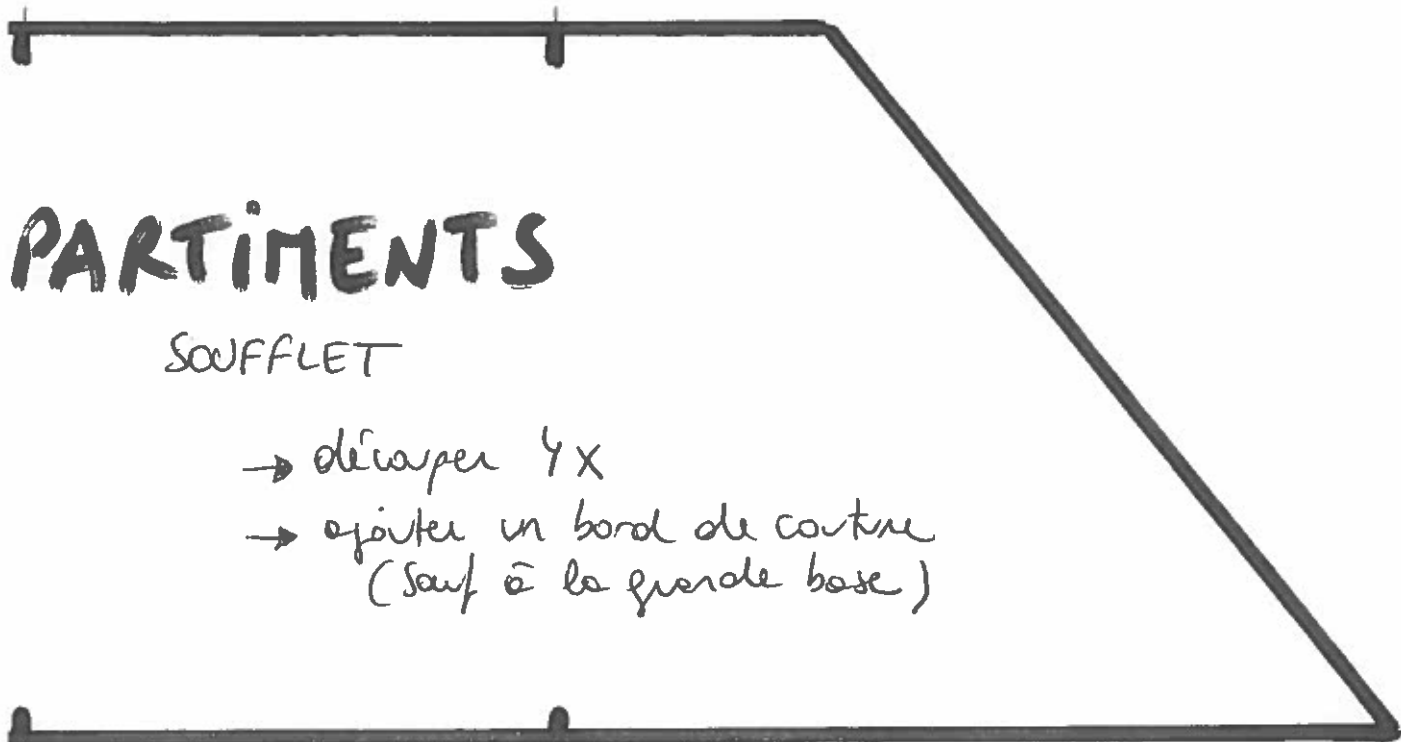 PARTiMENTS
SOUFFLET
→ découper 4x
→ ajouter un bord de couture
(Sauf à la grande base)